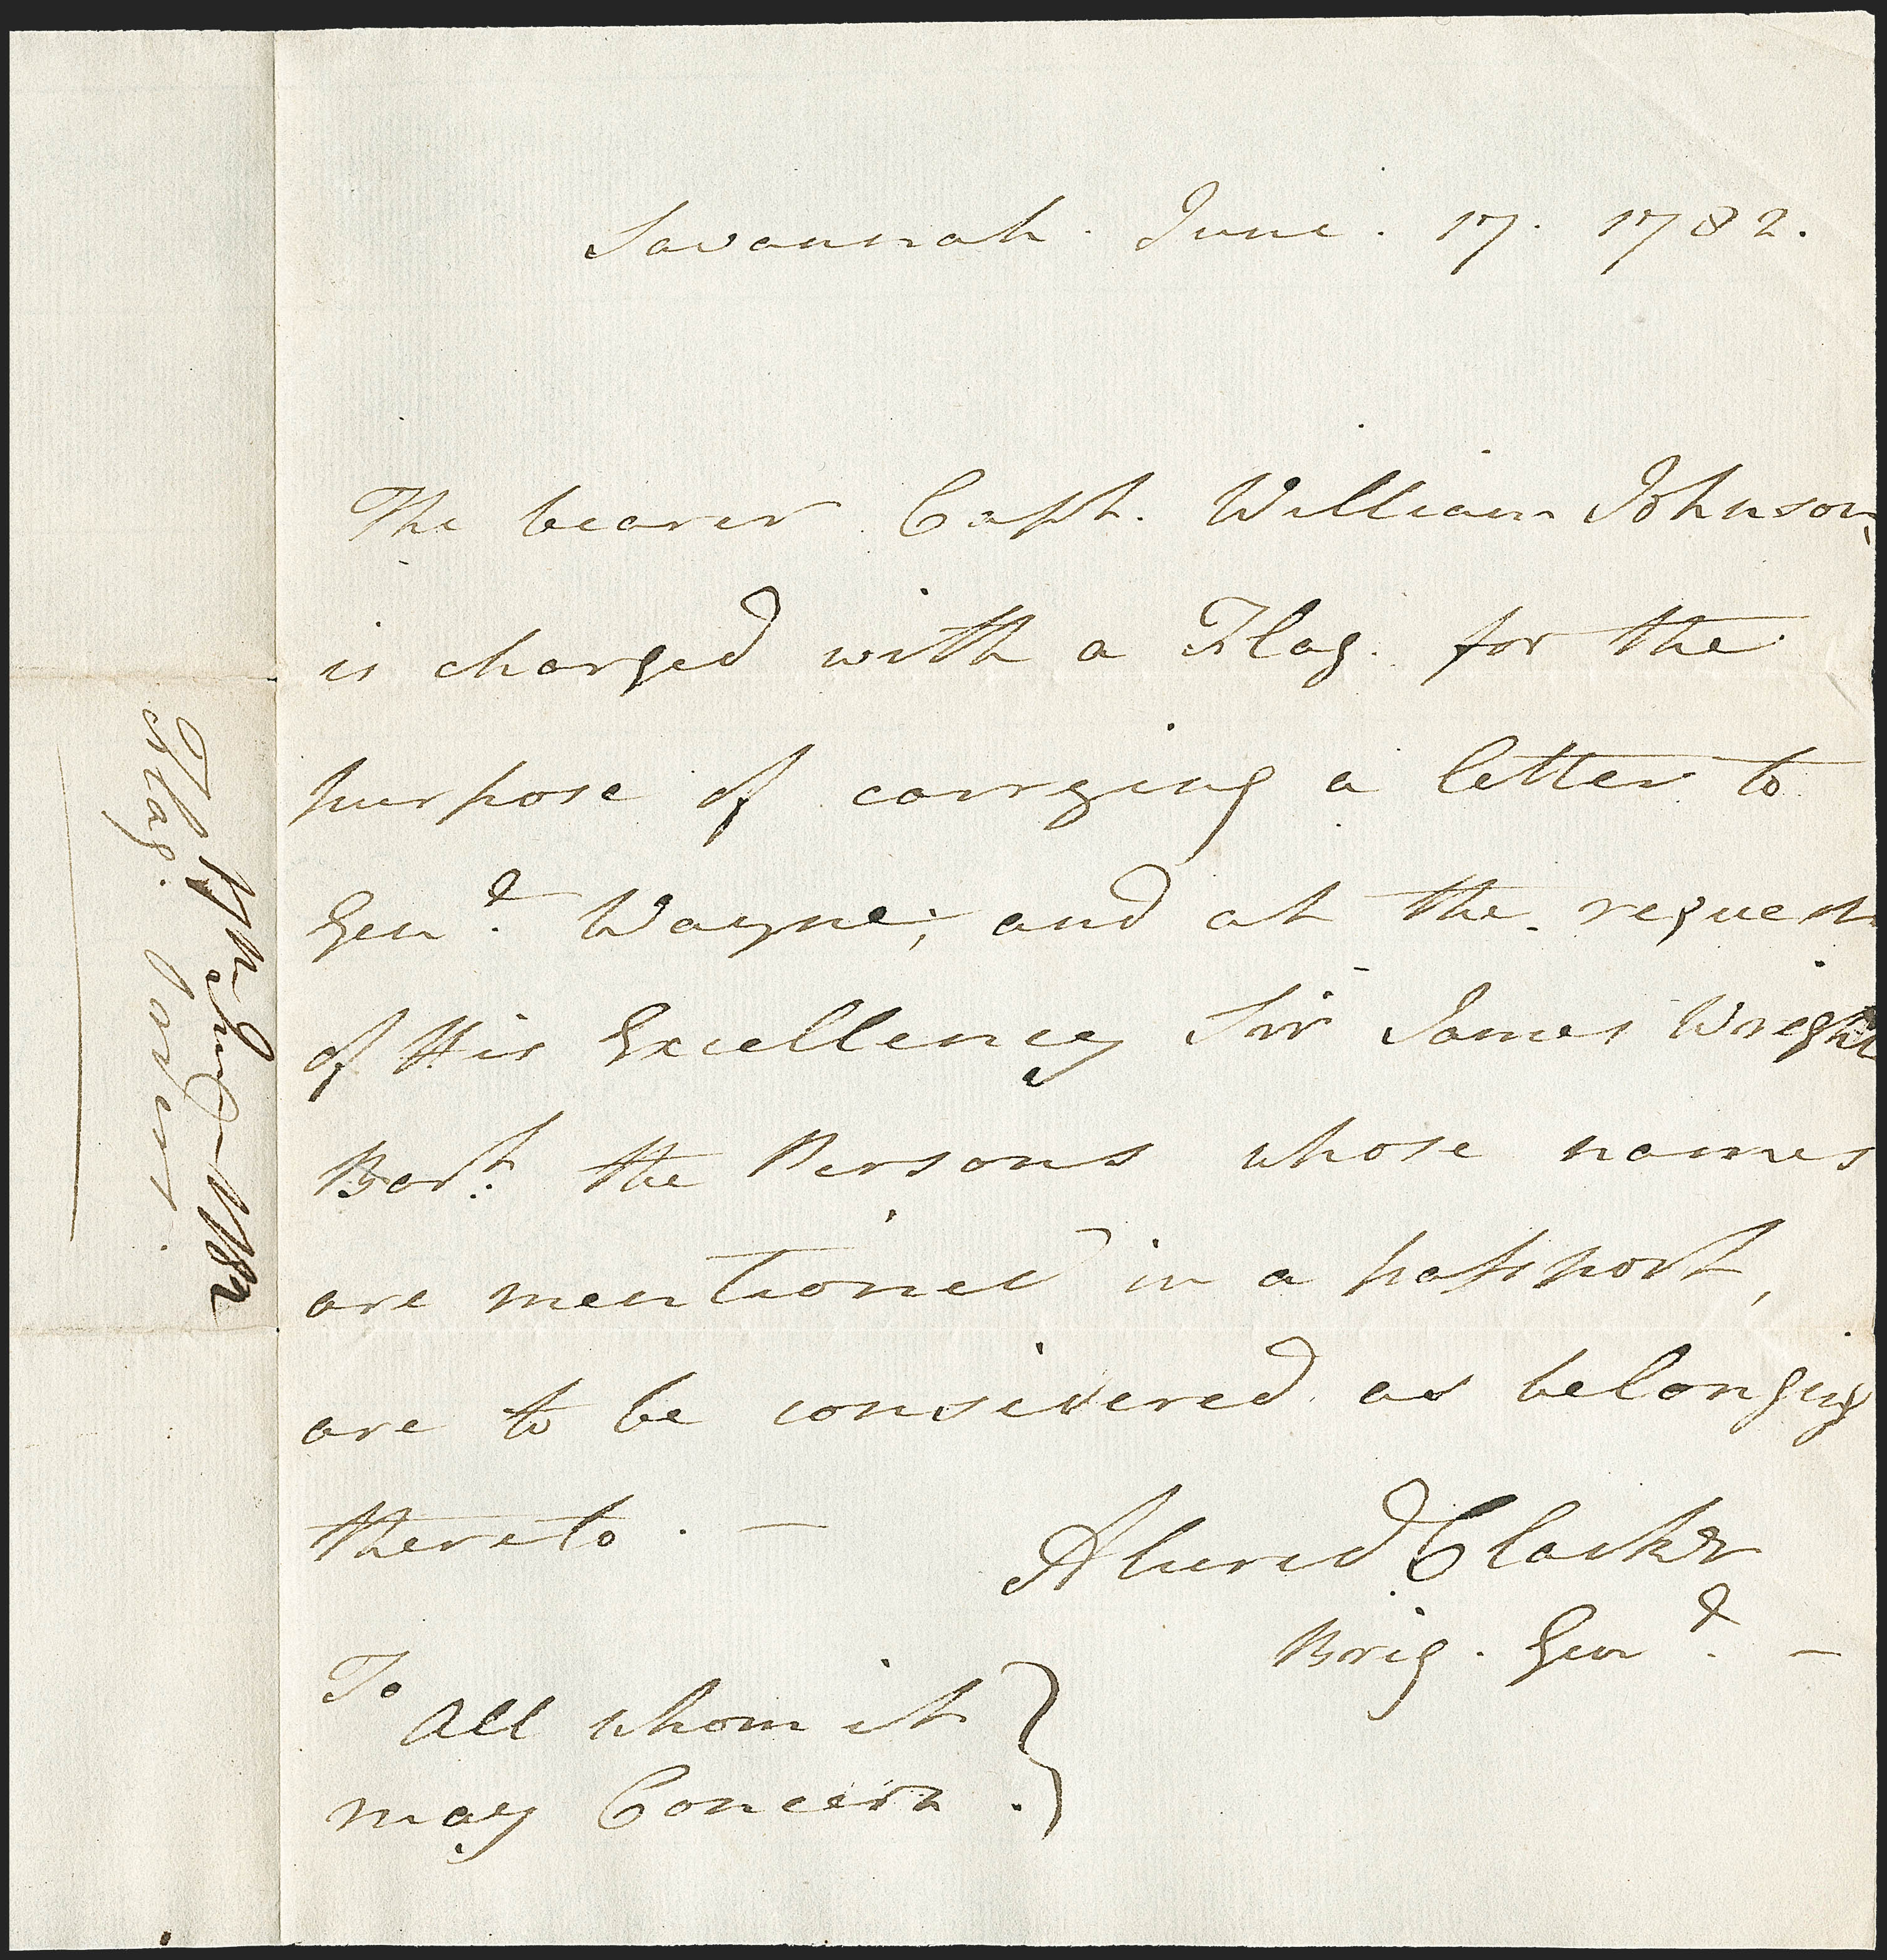 Savannah. June. 17. 1782.
The bearer Capt. William Johnson,
is charged with a Flag. for the
purpose of carrying a letter to
Genl. Wayne; and at the request
of His Excellency Sir James Wright
Bart. the Persons whose names
are mentioned in a passport,
are to be considered as belonging
thereto. —
Alured Clarke
Brig. Genl. —
To
All whom it
may Concern.
17th June 1782
Flag.